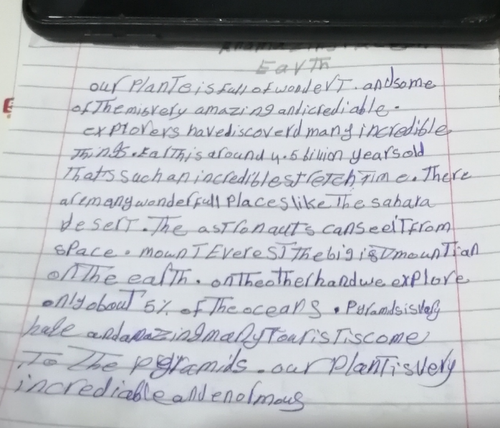 Earth
our planteis full of wondert. and some
of themis very amazing and icrediable.
explorers have discoverd mang incredible
things. Earth is around 4.5 billion years old
thats such an incredible stretch time. There
are many wonderfull places like the sahara
desert. The astronauts can see it from
space. mount Everest the big ist mountian
on the earth. on the other hand we explore
only about 5% of the oceans. Pyramids is vary
huge and amazing many tourist is come
To The pyramids. our plant is very
incrediable and enolmous